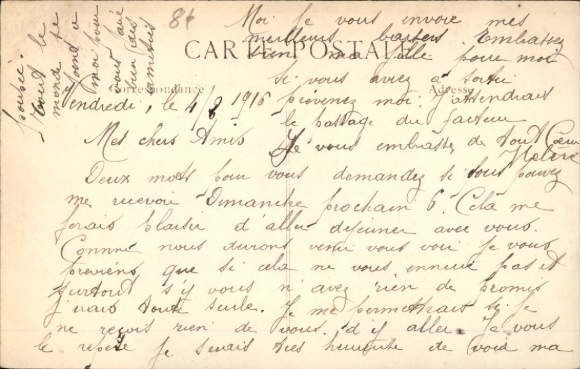 CARTE POSTALE
Correspondance
Adresse
84
Vendredi, le 4/8 1916
Mes chers Amis
Deux mots pour vous demandez si vous pouvez
me recevoir Dimanche prochain 6. Cela me
ferais plaisir d'aller déjeuner avec vous.
Comme nous devions venir vous voir je vous
previens que si cela ne vous ennuie pas et
surtout s'il vous n'avez rien de promis
j'irais toute seule. Je me permettrais si je
ne reçois rien de vous d'y aller. Je vous
le repete je serais très heureuse de voir ma
Moi je vous envoie mes
meilleurs baisers Embrassez
bien ma fille pour moi
si vous aviez à sortir
prévenez moi. J'attendrais
le passage du facteur
Je vous embrasse de tout Cœur
Helène
le
tout le
monde